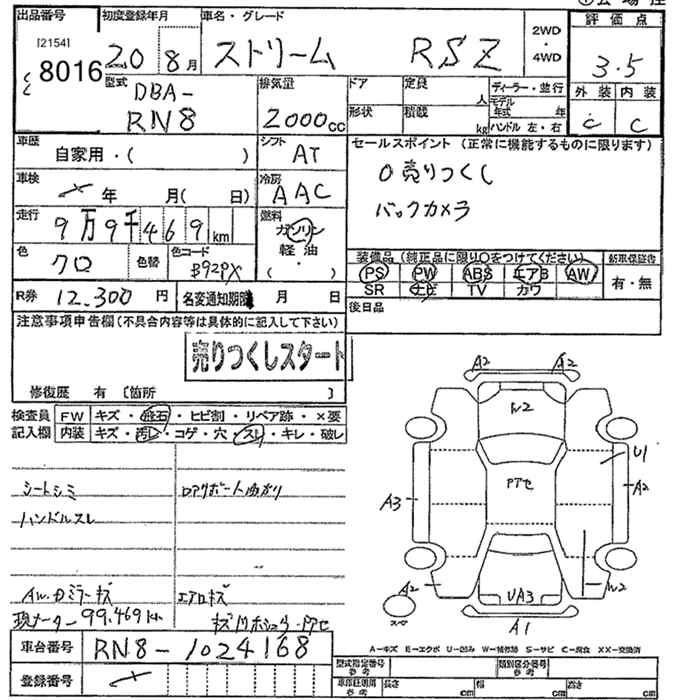 出品番号 初度登録年月 車名・グレード 2WD ・ 4WD 評価点
[2154] 8016 20 8月 ストリーム RSZ 3.5
型式 排気量 ドア 定員 人 ディーラー・並行 外装 内装
DBA-RN8 2000cc 形状 積載 kg モデル年式 年 C C
ハンドル 左・右
車歴 シフト セールスポイント (正常に機能するものに限ります)
自家用・( ) AT 〇売りつくし
車検 年 月( 日) 冷房 AAC バックカメラ
走行 9万9千469km 燃料 ガソリン
軽油
( ・ )
色 クロ 色替 色コード B92PX
装備品 (純正品に限り〇をつけてください) 新車保証書
PS PW ABS エアB AW 有・無
SR ナビ TV カワ
R券 12,300円 名変通知期限 月 日 後日品
注意事項申告欄 (不具合内容等は具体的に記入して下さい)
売りつくしスタート
修復歴 有 [箇所 ]
検査員 FW キズ・飛石・ヒビ割・リペア跡・×要
記入欄 内装 キズ・汚レ・コゲ・穴・スレ・キレ・破レ
シートシミ
ハンドルスレ
AW.Dミラーキズ エアロキズ
現メーター 99,469km
車台番号 RN8-1024168
登録番号
A2 A2
W2
U1
A3 Pアセ A2
A2 UA3 W2
A1
A-キズ E-エクボ U-凹み W-補修跡 S-サビ C-腐食 XX-交換済
型式指定番号 参考 類別区分番号 参考
車両証明寸法 参考 長さ cm 幅 cm 高さ cm